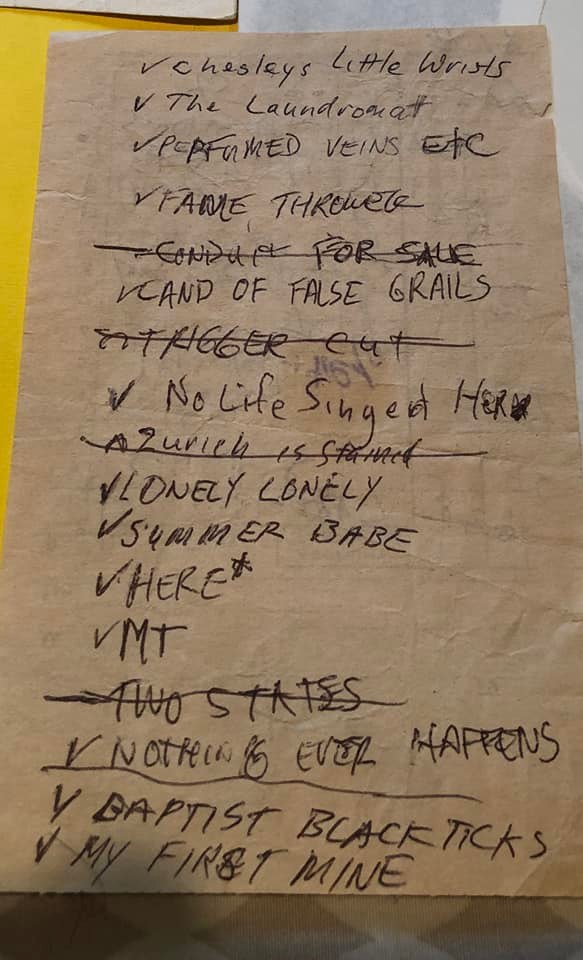 ✓ Chesleys Little Wrists
✓ The Laundromat
✓ PERFUMED VEINS EtC
✓ FAME THROWER
CONDUIT FOR SALE
✓ LAND OF FALSE GRAILS
TRIGGER CUT
✓ No Life Singed HER
Zurich is Stained
✓ LONELY LONELY
✓ SUMMER BABE
✓ HERE*
✓ MT
TWO STATES
✓ NOTHING EVER HAPPENS
✓ BAPTIST BLACKTICKS
✓ MY FIRST MINE